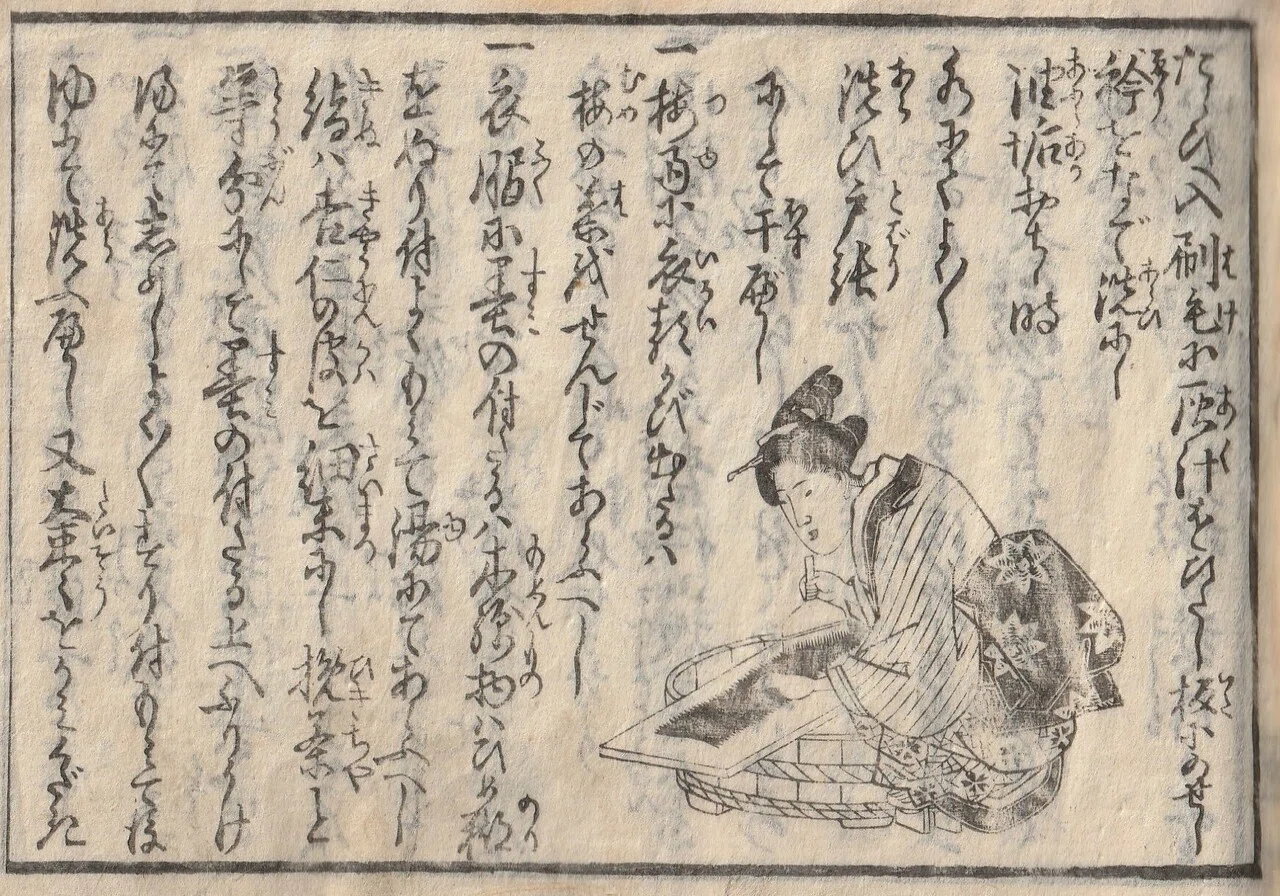 たらひへ入刷毛に灰汁をひたし板にのせ
衿をなで洗ふし
油垢おちし時
水にてよく〳〵
洗ひ戸張
にして干べし
一梅雨に衣類かび出たるハ
梅の葉をせんじてあらふべし
一衣服に墨の付たるハ木綿物ハひめ糊
をぬり付よくもミて湯にてあらふべし
絹ハ杏仁の皮を細末にし挽茶と
等分にして墨の付たる上へふりかけ
湯にてしめしよく〳〵すり付もミて後
ゆにて洗ふべし又大棗をかミくだき